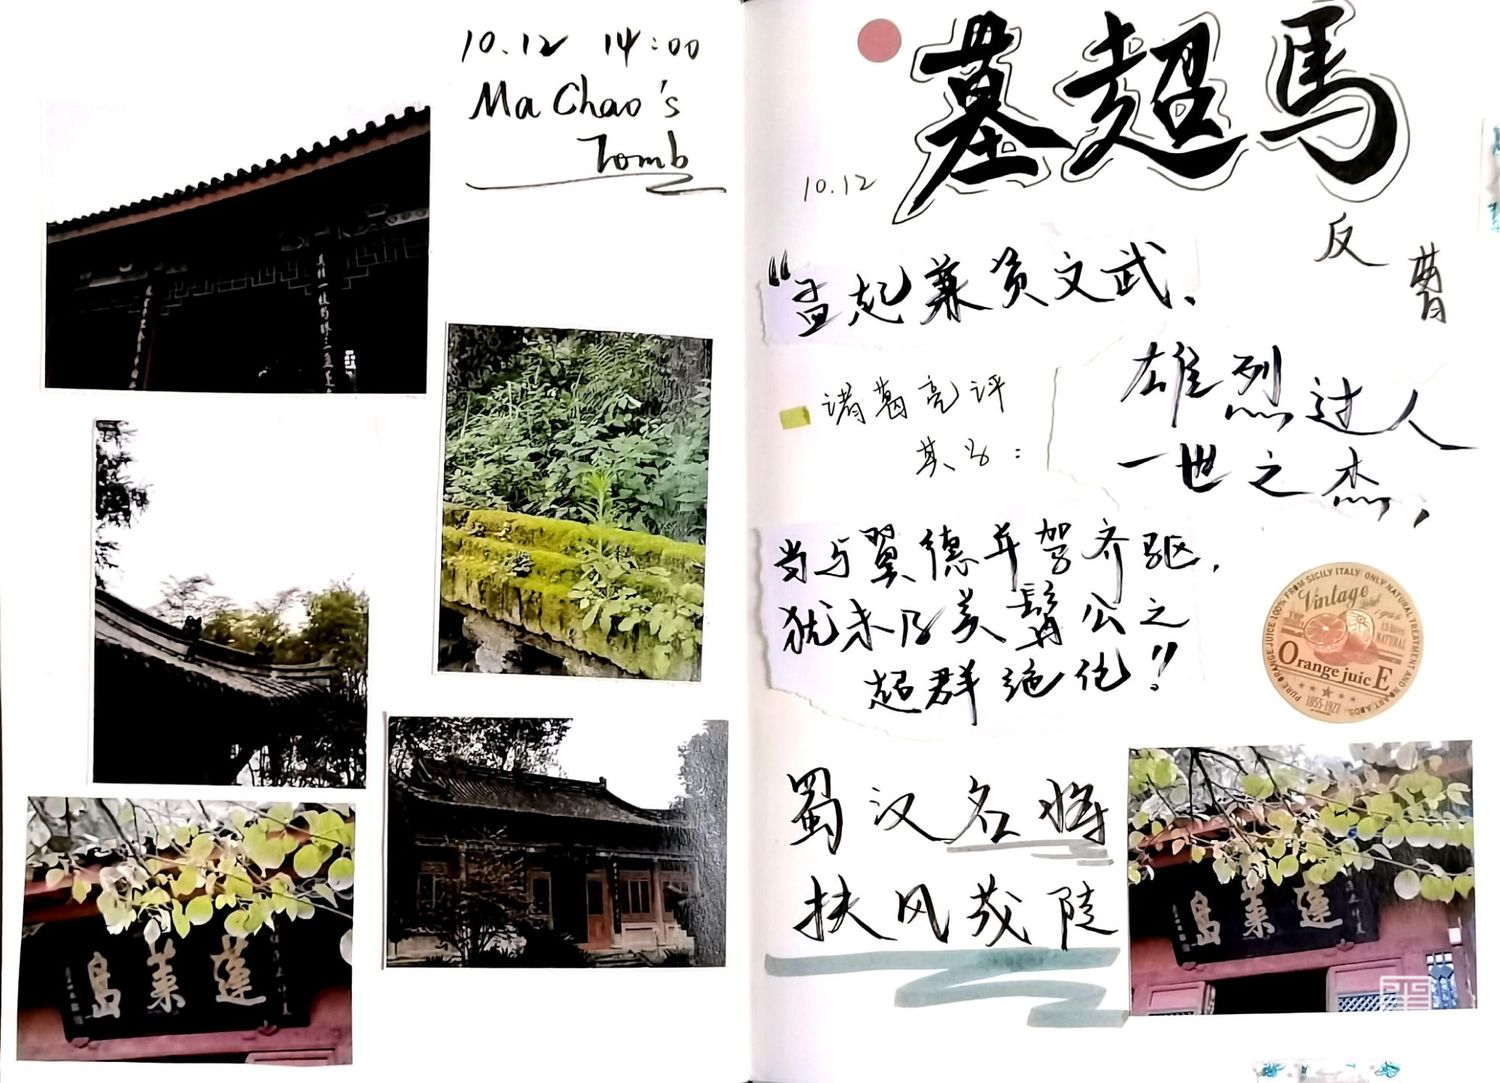 10.12 14:00
Ma Chao's
Tomb
蓬莱島
墓超馬
10.12
反曹
“孟起兼资文武、
雄烈过人
一世之杰,
诸葛亮评
其曰:
当与翼德并驾齐驱,
犹未及美髯公之
超群绝伦!”
PURE ORANGE JUICE 100% FROM SICILY ITALY ONLY NATURAL TREATMENT AND
Vintage
NATURAL
Orange juicE
1855-1922
蜀汉名将
扶风茂陵
蓬莱島